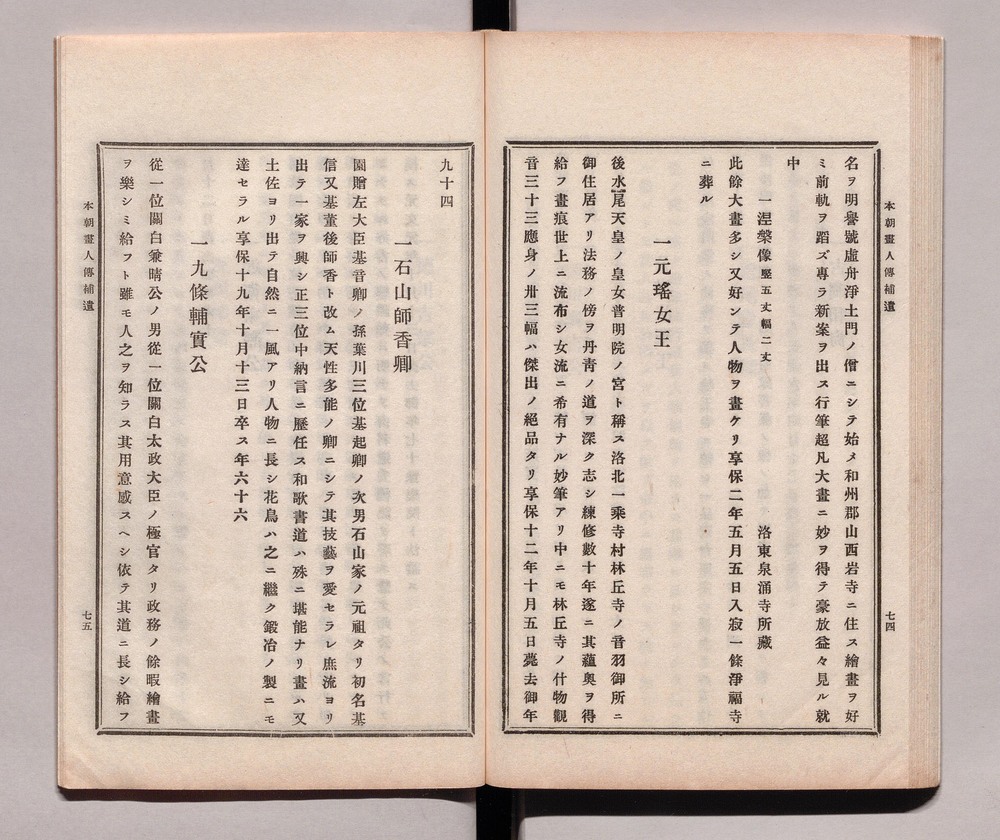 本朝畫人傳補遺
七四
名ヲ明譽號虛舟淨土門ノ僧ニシテ始メ和州郡山西岩寺ニ住ス繪畫ヲ好
ミ前軌ヲ蹈ズ專ラ新案ヲ出ス行筆超凡大畫ニ妙ヲ得テ豪放益々見ル就
中
一涅槃像 竪五丈幅二丈 洛東泉涌寺所藏
此餘大畫多シ又好ンテ人物ヲ畫ケリ享保二年五月五日入寂一條淨福寺
ニ葬ル
一元瑤女王
後水尾天皇ノ皇女普明院ノ宮ト稱ス洛北一乘寺村林丘寺ノ音羽御所ニ
御住居アリ法務ノ傍ヲ丹靑ノ道ヲ深ク志シ練修數十年遂ニ其蘊奥ヲ得
給フ畫痕世上ニ流布シ女流ニ希有ナル妙筆アリ中ニモ林丘寺ノ什物觀
音三十三應身ノ卅三幅ハ傑出ノ絕品タリ享保十二年十月五日薨去御年
九十四
一石山師香卿
園贈左大臣基音卿ノ孫葉川三位基起卿ノ次男石山家ノ元祖タリ初名基
信又基董後師香ト改ム天性多能ノ卿ニシテ其技藝ヲ愛セラレ庶流ヨリ
出テ一家ヲ興シ正三位中納言ニ歷任ス和歌書道ハ殊ニ堪能ナリ畫ハ又
土佐ヨリ出テ自然ニ一風アリ人物ニ長シ花鳥ハ之ニ繼ク鍛冶ノ製ニモ
達セラル享保十九年十月十三日卒ス年六十六
一九條輔實公
從一位關白兼晴公ノ男從一位關白太政大臣ノ極官タリ政務ノ餘暇繪畫
ヲ樂シミ給フト雖モ人之ヲ知ラス其用意感スヘシ依テ其道ニ長シ給フ
本朝畫人傳補遺
七五